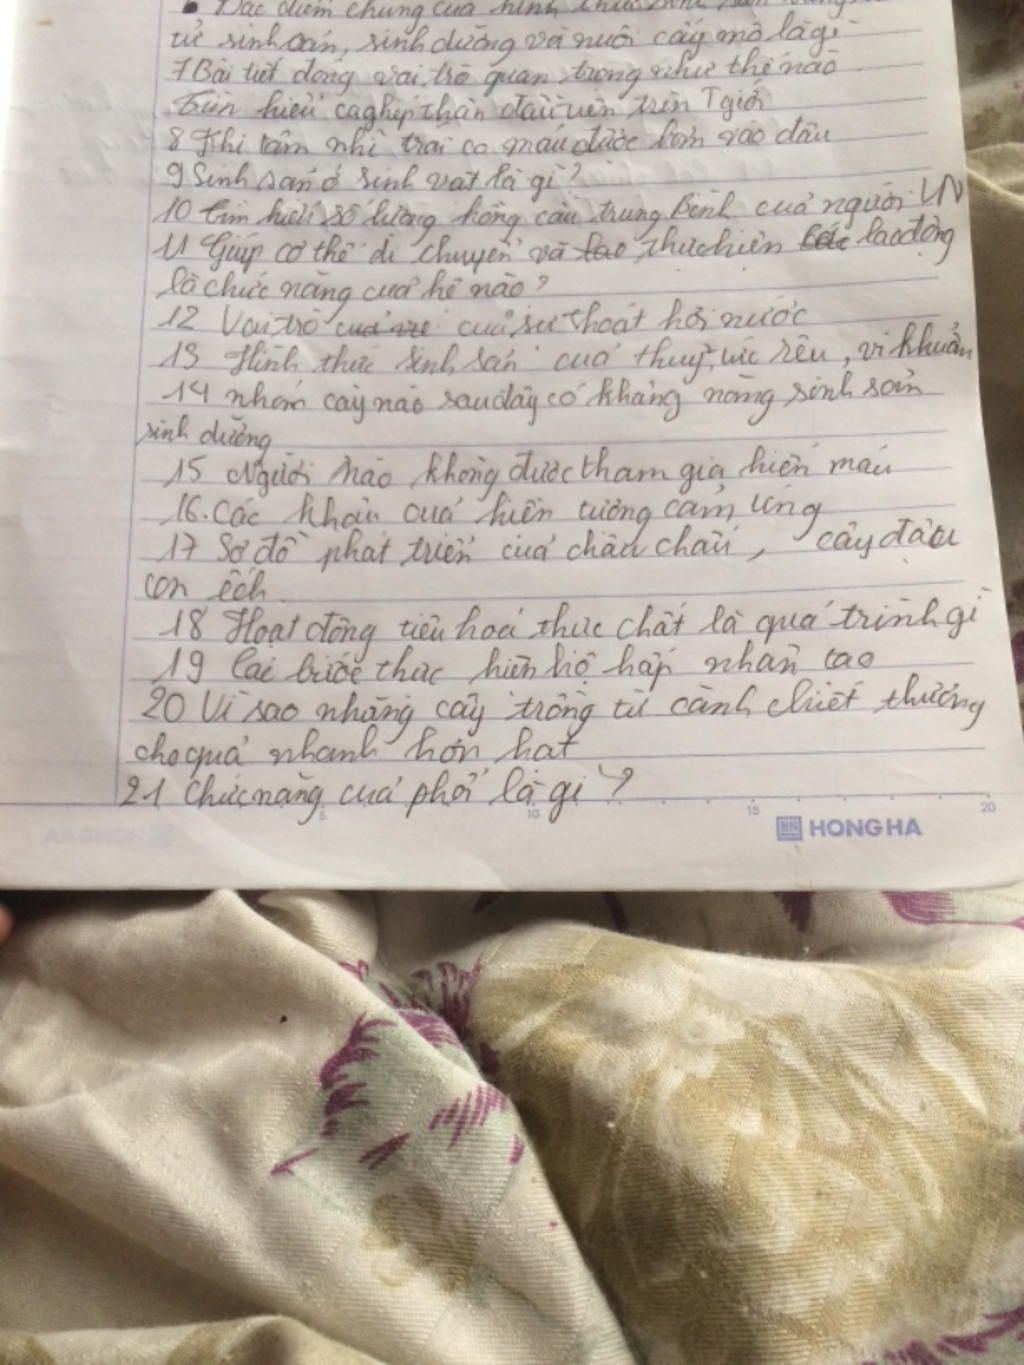 Đặc điểm chung của hình thức sinh sản bằng
tử sinh sản, sinh dưỡng và nuôi cấy mô là gì
7 Bài tiết đóng vai trò quan trọng như thế nào
tìm hiểu ca ghép thận đầu tiên trên T giới
8 Khi tâm nhĩ trái co máu được bơm vào đâu
9 Sinh sản ở sinh vật là gì?
10 tìm hiểu số lượng hồng cầu trung Bình của người VN
11 Giúp cơ thể di chuyển và thực hiện lao động
là chức năng của hệ nào?
12 Vai trò của sự thoát hơi nước
13 Hình thức sinh sản của thuỷ tức rêu, vi khuẩn
14 nhóm cây nào sau đây có khả năng sinh sản
sinh dưỡng
15 Người nào không được tham gia hiến máu
16. Các khâu của hiện tượng cảm ứng
17 Sơ đồ phát triển của châu chấu, cây đậu
con ếch
18 Hoạt động tiêu hoá thực chất là quá trình gì
19 Các bước thực hiện hô hấp nhân tạo
20 Vì sao những cây trồng từ cành chiết thường
cho quả nhanh hơn hạt
21 Chức năng của phổi là gì?
5 10 15 20
HONG HA